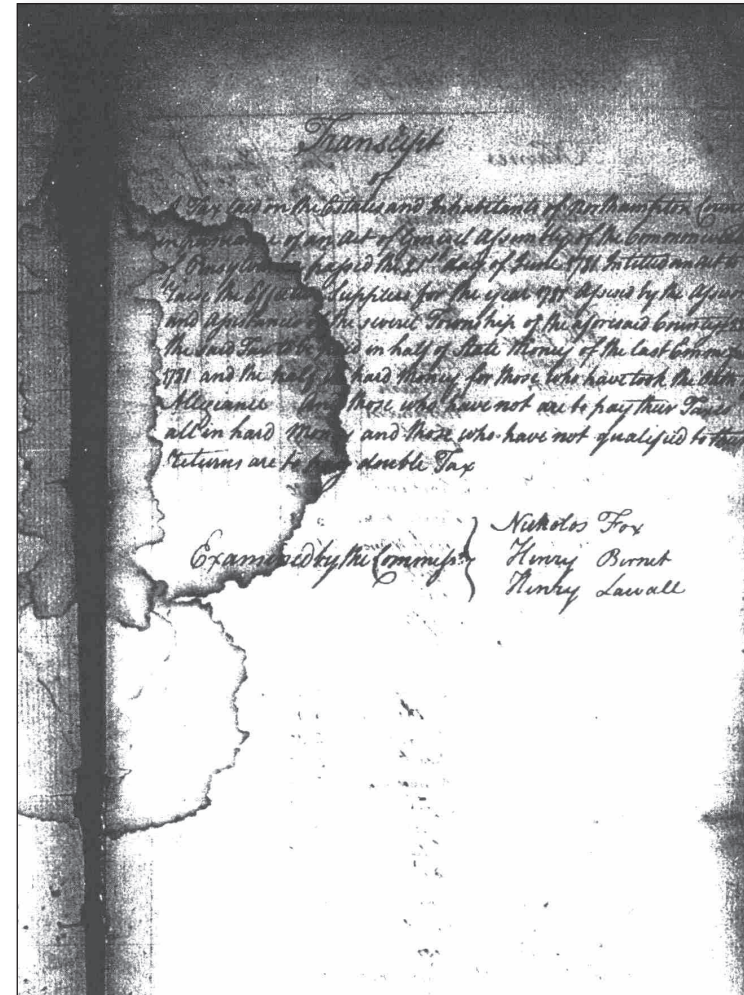 Transcript
of
A Tax laid on the Estates and Inhabitants of Northampton
in pursuance of an Act of General Assembly of the
of passed the day of June 1781 Intitled an Act to
Raise the Supplies for the year 1781 by the
and of the several Township of the aforesaid
the said Tax to be in half of State Money of the last
1781 and the half in hard Money for those who have took the
Allegiance And those who have not are to pay their Taxes
all in hard Money and those who have not qualified to their
Returns are to pay double Tax
Examined by the Commissrs
Nicholos Fox
Henry Bernet
Henry Lawall